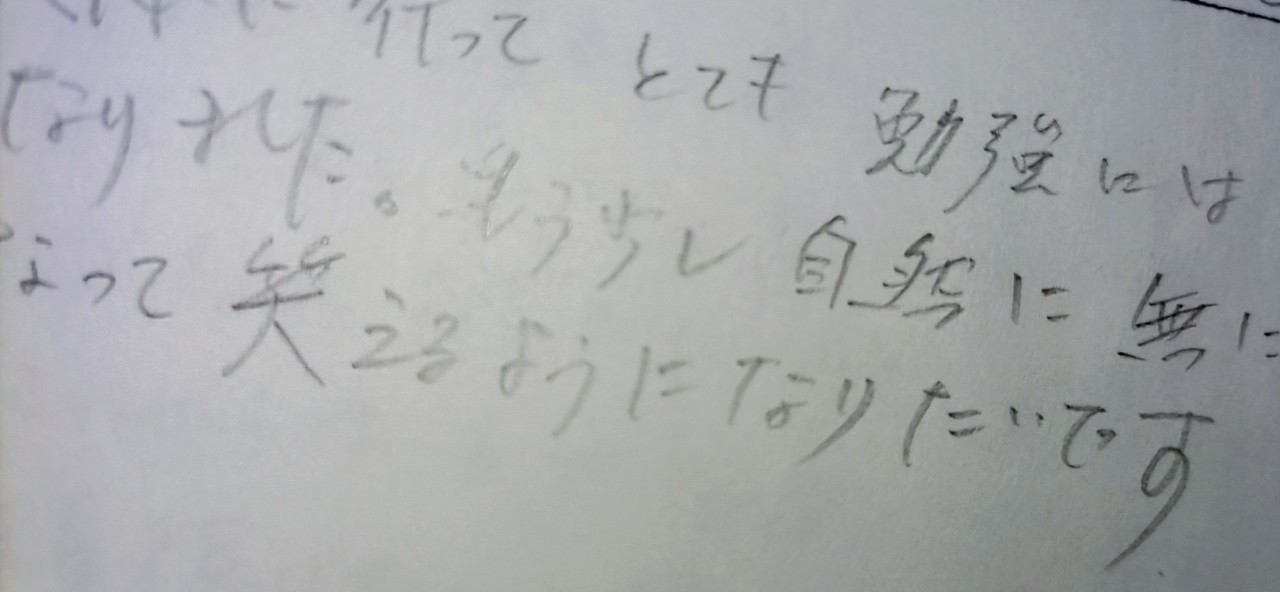 行って とても 勉強には
なりました。もう少し 自然に 無に
なって 笑えるようになりたいです